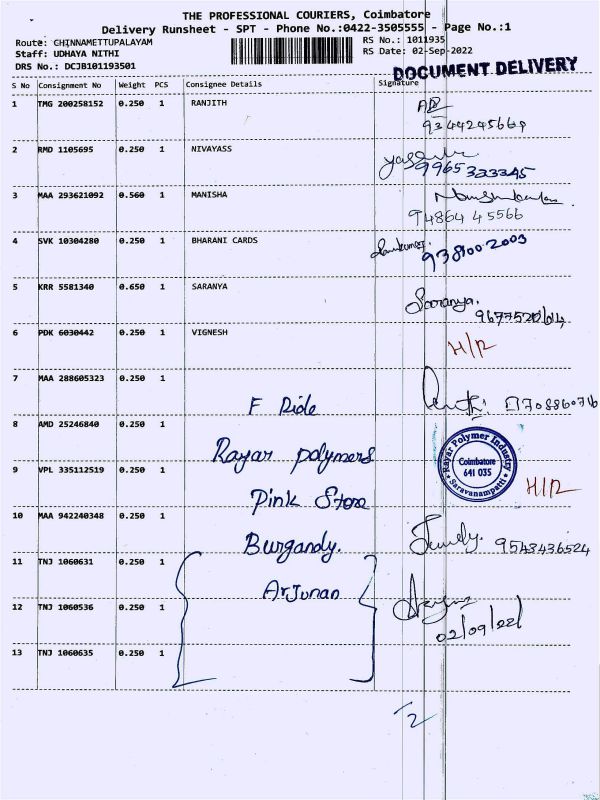 THE PROFESSIONAL COURIERS, Coimbatore
Delivery Runsheet - SPT - Phone No.:0422-3505555 - Page No.:1
Route: CHINNAMETTUPALAYAM
RS No.: 1011935
Staff: UDHAYA NITHI
RS Date: 02-Sep-2022
DRS No.: DCJB101193501
DOCUMENT DELIVERY
S No Consignment No Weight PCS Consignee Details Signature
1 TMG 200258152 0.250 1 RANJITH
9344245669
2 RMD 1105695 0.250 1 NIVAYASS
9965323345
3 MAA 293621092 0.560 1 MANISHA
94864 45566
4 SVK 10304280 0.250 1 BHARANI CARDS
938100 2003
5 KRR 5581340 0.650 1 SARANYA Saranya.
6 PDK 6030442 0.250 1 VIGNESH H/R
7 MAA 288605323 0.250 1
F Ride
8 AMD 25246840 0.250 1
Rayar polymers
Rayar Polymer Industry
Coimbatore
641 035
Saravanampatti
9 VPL 335112519 0.250 1 H/R
Pink Store
10 MAA 942240348 0.250 1
Burgandy. 9543436524
11 TNJ 1060631 0.250 1
Arjunan
12 TNJ 1060536 0.250 1
02/09/22
13 TNJ 1060635 0.250 1